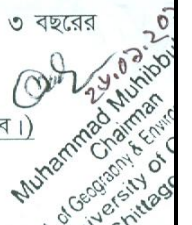 ৩ বছরের
২৮.০১.২০১
ব।)
Muhammad Muhibbu
Chairman
of Geography & Enviro
versity of C
hittago